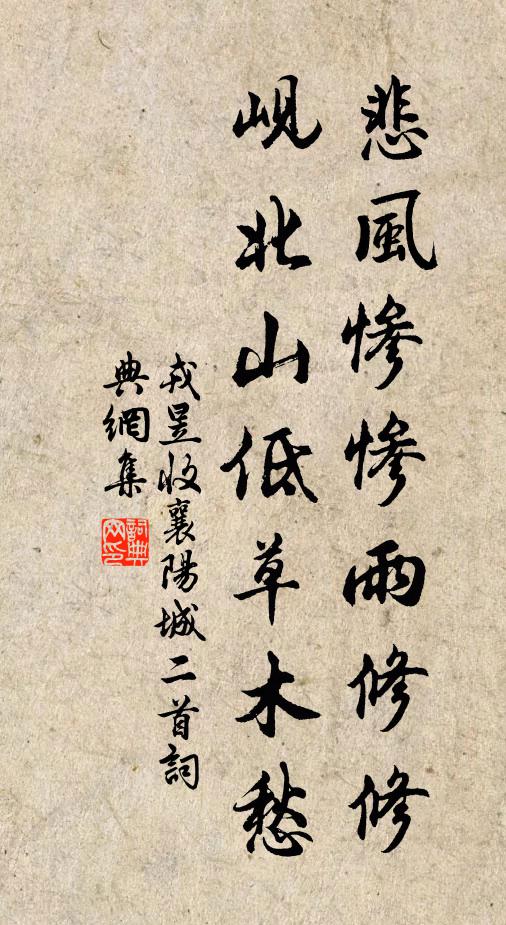 悲風慘慘雨修修
峴北山低草木愁
戎昱收襄陽城二首詞
典網集
詞典網印